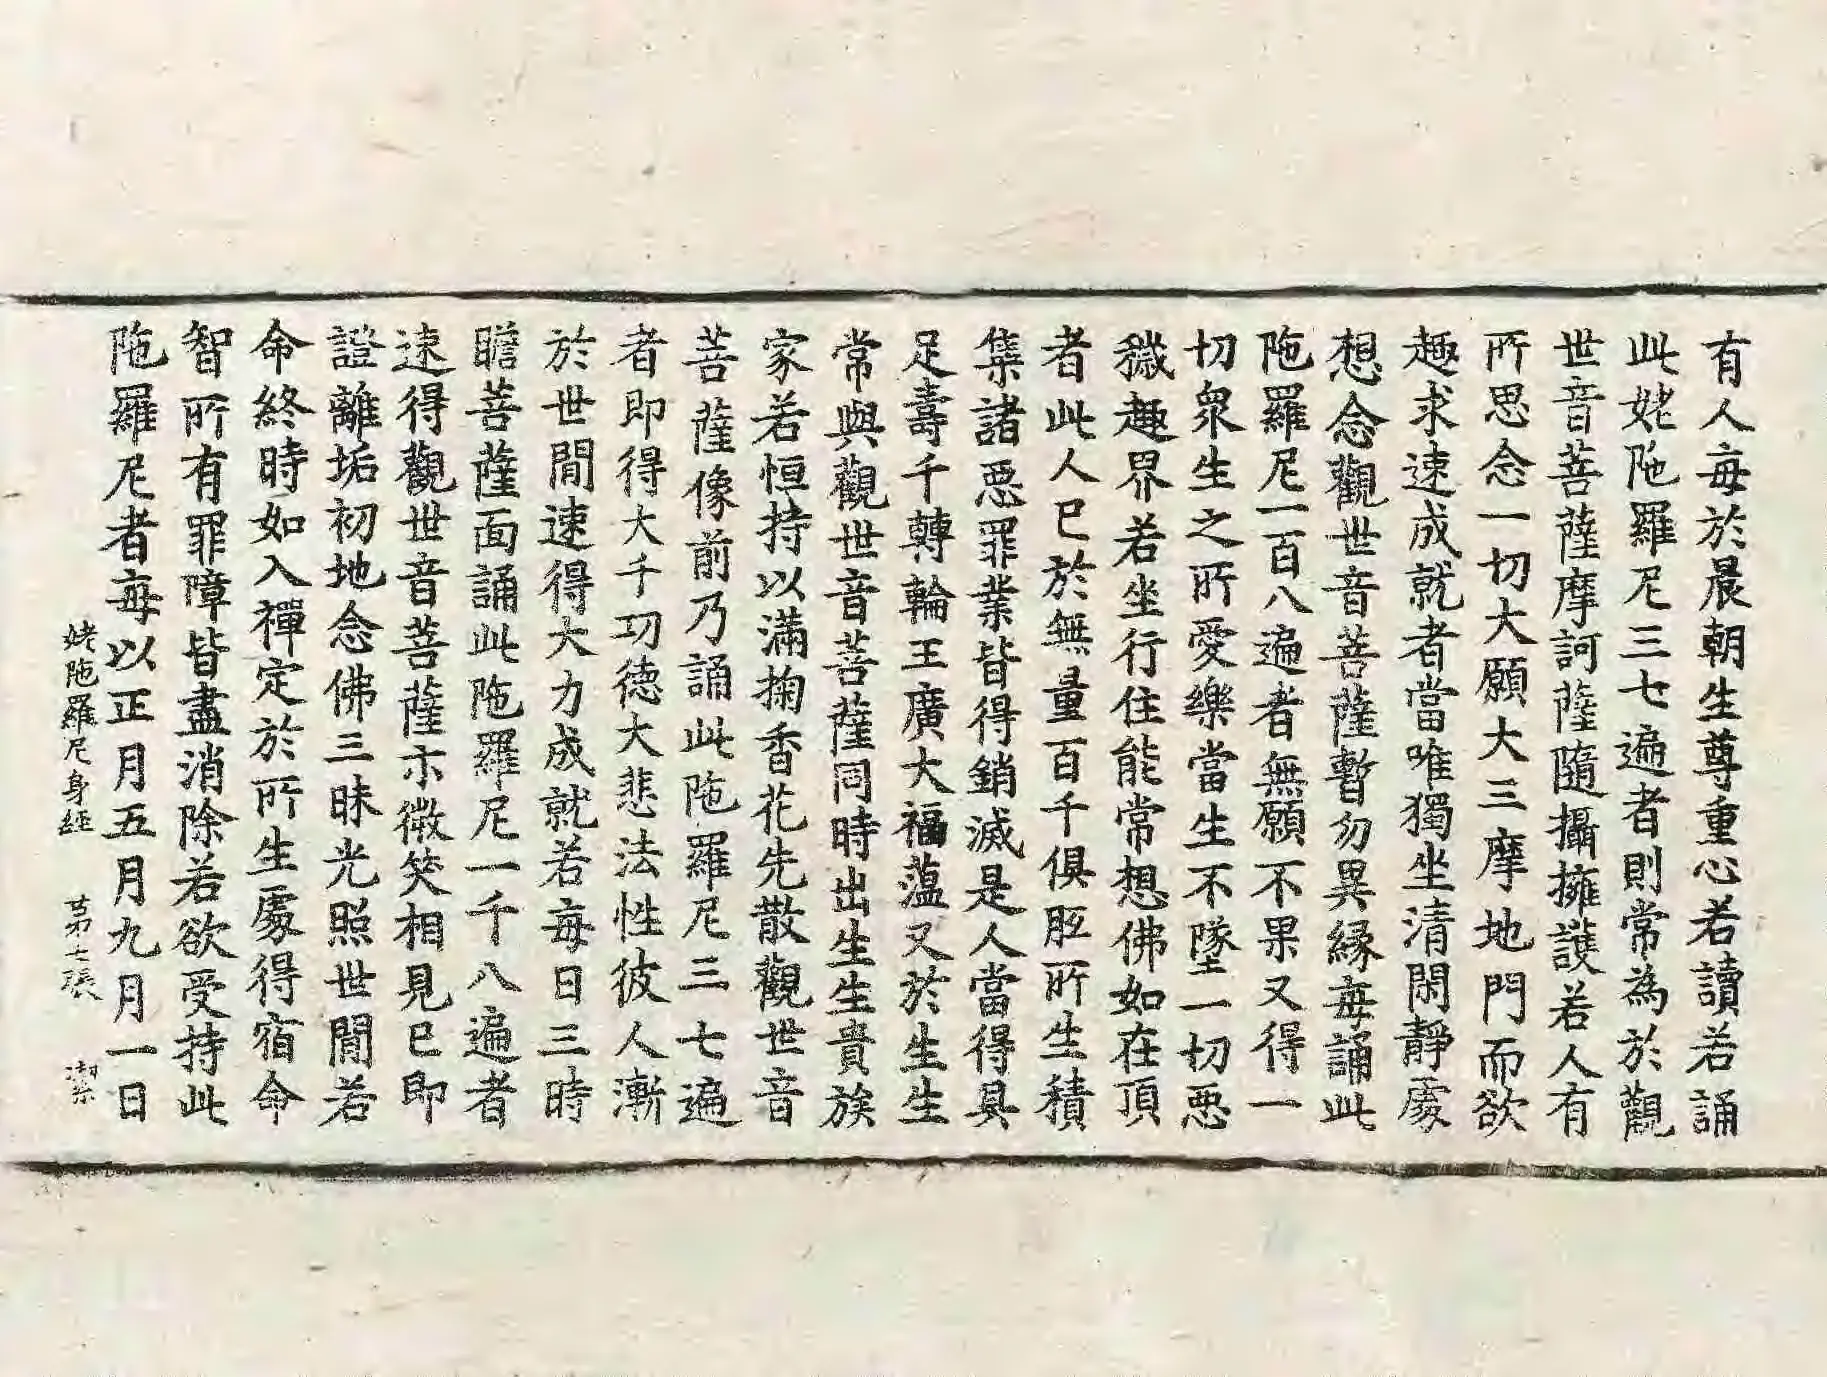 有人每於晨朝生尊重心若讀若誦
此姥陁羅尼三七遍者則常為於觀
世音菩薩摩訶薩隨攝擁護若人有
所思念一切大願大三摩地門而欲
趣求速成就者當唯獨坐清閑靜處
想念觀世音菩薩暫勿異緣每誦此
陁羅尼一百八遍者無願不果又得一
切眾生之所愛樂當生不墜一切惡
穢趣界若坐行住能常想佛如在頂
者此人已於無量百千俱胝所生積
集諸惡罪業皆得銷滅是人當得具
足壽千轉輪王廣大福蘊又於生生
常與觀世音菩薩同時出生生貴族
家若恒持以滿掬香花先散觀世音
菩薩像前乃誦此陁羅尼三七遍
者即得大千功德大悲法性彼人漸
於世間速得大力成就若每日三時
瞻菩薩面誦此陁羅尼一千八遍者
速得觀世音菩薩示微笑相見已即
證離垢初地念佛三昧光照世間若
命終時如入禪定於所生處得宿命
智所有罪障皆盡消除若欲受持此
陁羅尼者每以正月五月九月一日
姥陁羅尼身經 第七張 潔